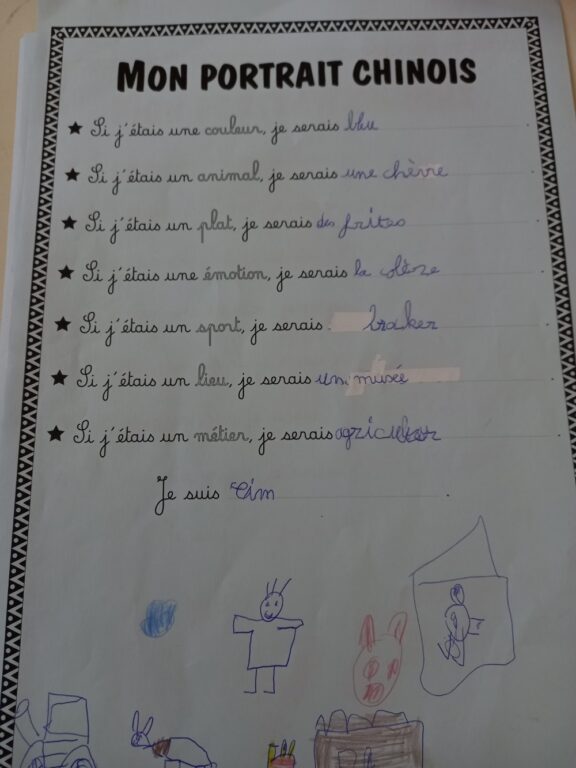 MON PORTRAIT CHINOIS
★ Si j'étais une couleur, je serais bleu
★ Si j'étais un animal, je serais une chèvre
★ Si j'étais un plat, je serais des frites
★ Si j'étais une émotion, je serais la colère
★ Si j'étais un sport, je serais
★ Si j'étais un lieu, je serais un musée
★ Si j'étais un métier, je serais
Je suis